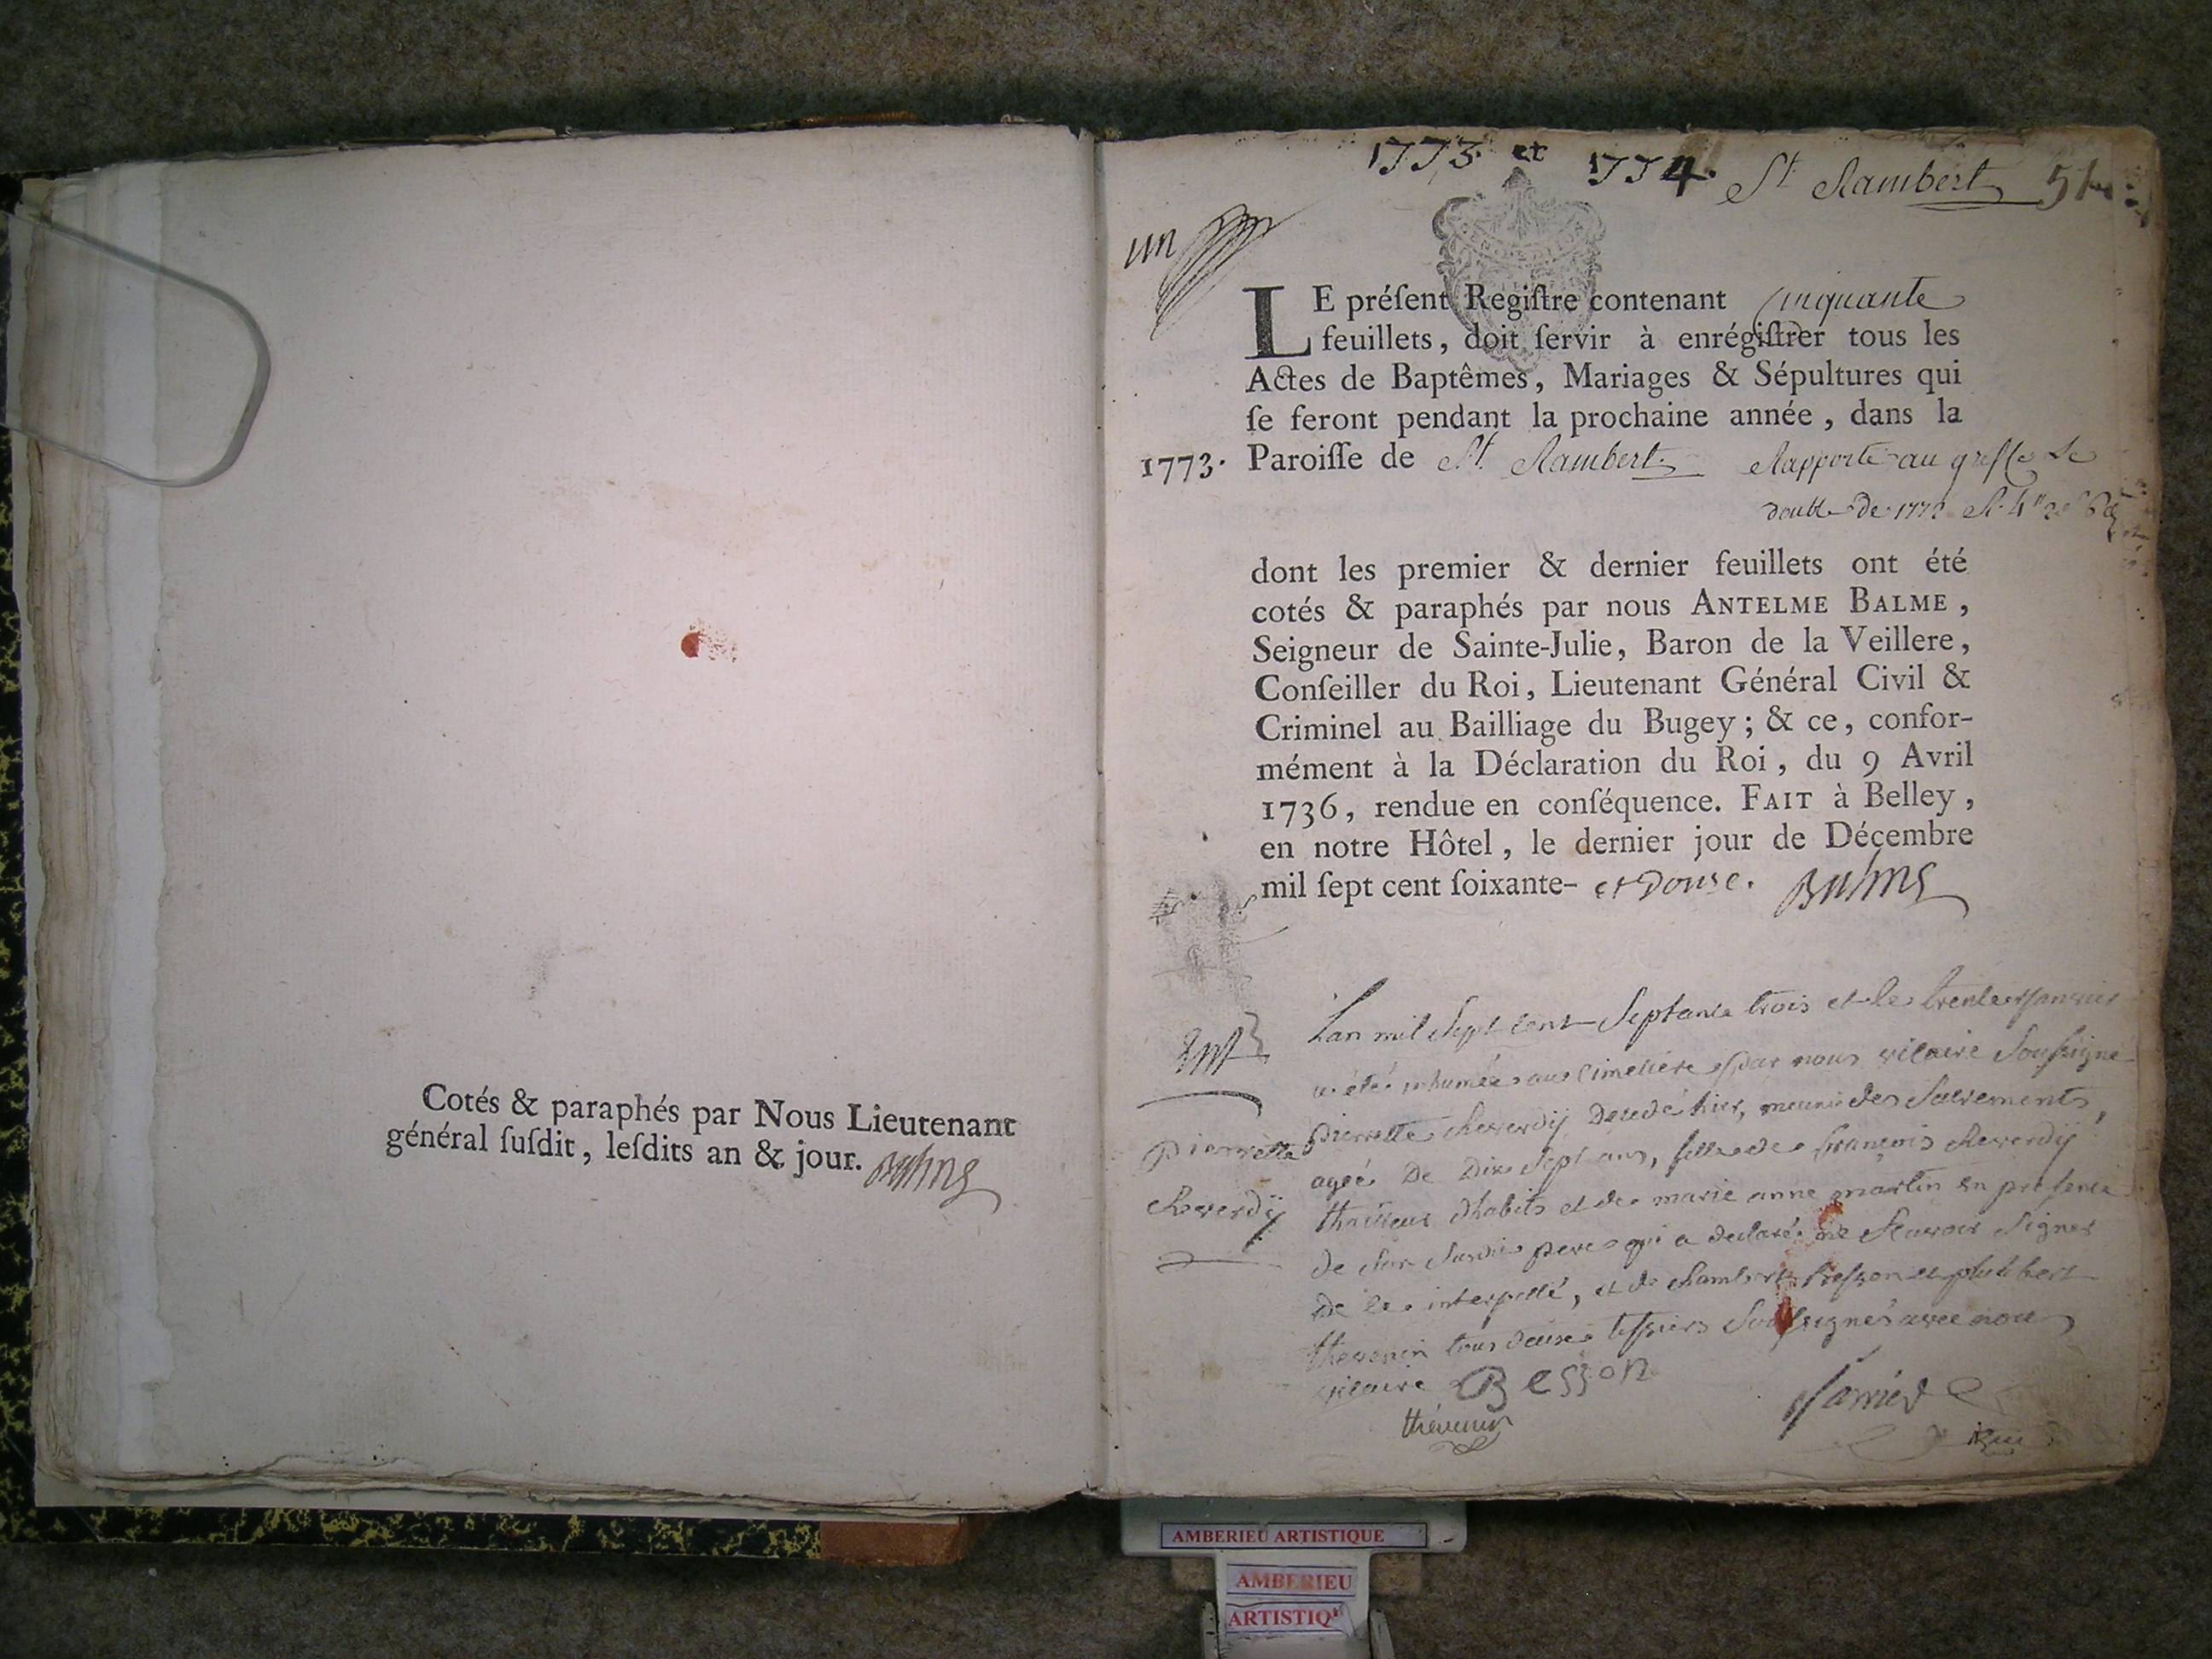 Cotés & paraphés par Nous Lieutenant
général ſuſdit, leſdits an & jour. Balme
1773 et 1774. St Rambert
un
LE préſent Regiſtre contenant Cinquante
feuillets, doit ſervir à enrégiſtrer tous les
Actes de Baptêmes, Mariages & Sépultures qui
ſe feront pendant la prochaine année, dans la
1773. Paroiſſe de St. Rambert Rapporté au greffe le
double de 1772
dont les premier & dernier feuillets ont été
cotés & paraphés par nous ANTELME BALME,
Seigneur de Sainte-Julie, Baron de la Veillere,
Conſeiller du Roi, Lieutenant Général Civil &
Criminel au Bailliage du Bugey; & ce, confor-
mément à la Déclaration du Roi, du 9 Avril
1736, rendue en conſéquence. FAIT à Belley,
en notre Hôtel, le dernier jour de Décembre
mil ſept cent ſoixante- et Douse. Balme
Pierrette
Reverdÿ
Lan mil Sept cent Septante trois et le trente janvier
a été inhumée au Cimetière par nous vicaire Soussigné
pierrette Reverdÿ Decedé hier, munie des Sacrements,
agée De Dix Sept ans, fille de françois Reverdÿ
thailleur dhabits et de marie anne martin en presence
de Son Susdit pere qui a declaré ne Scavoir Signer
De ce interpellé, et de Rambert Besson et philibert
thevenin tous deux Soussignés avec nous
vicaire Besson
thévenin